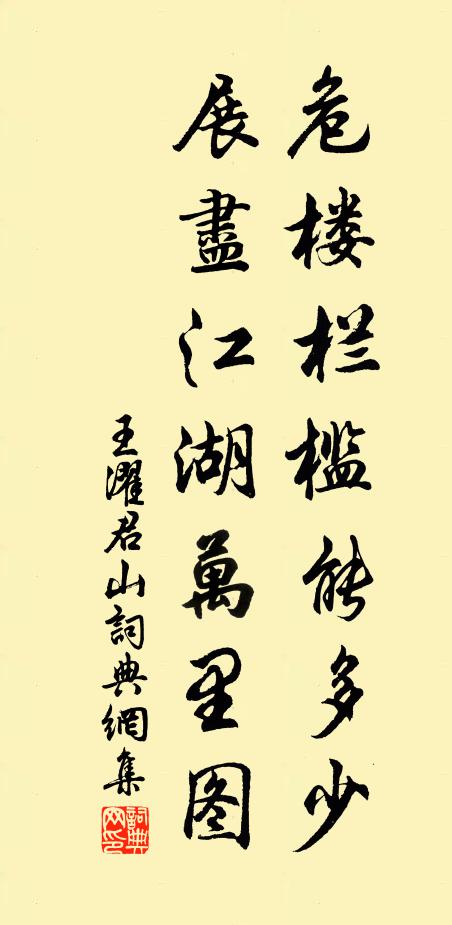 危楼栏槛能多少
展盡江湖萬里图
王濯君山詞典網集
詞典网印